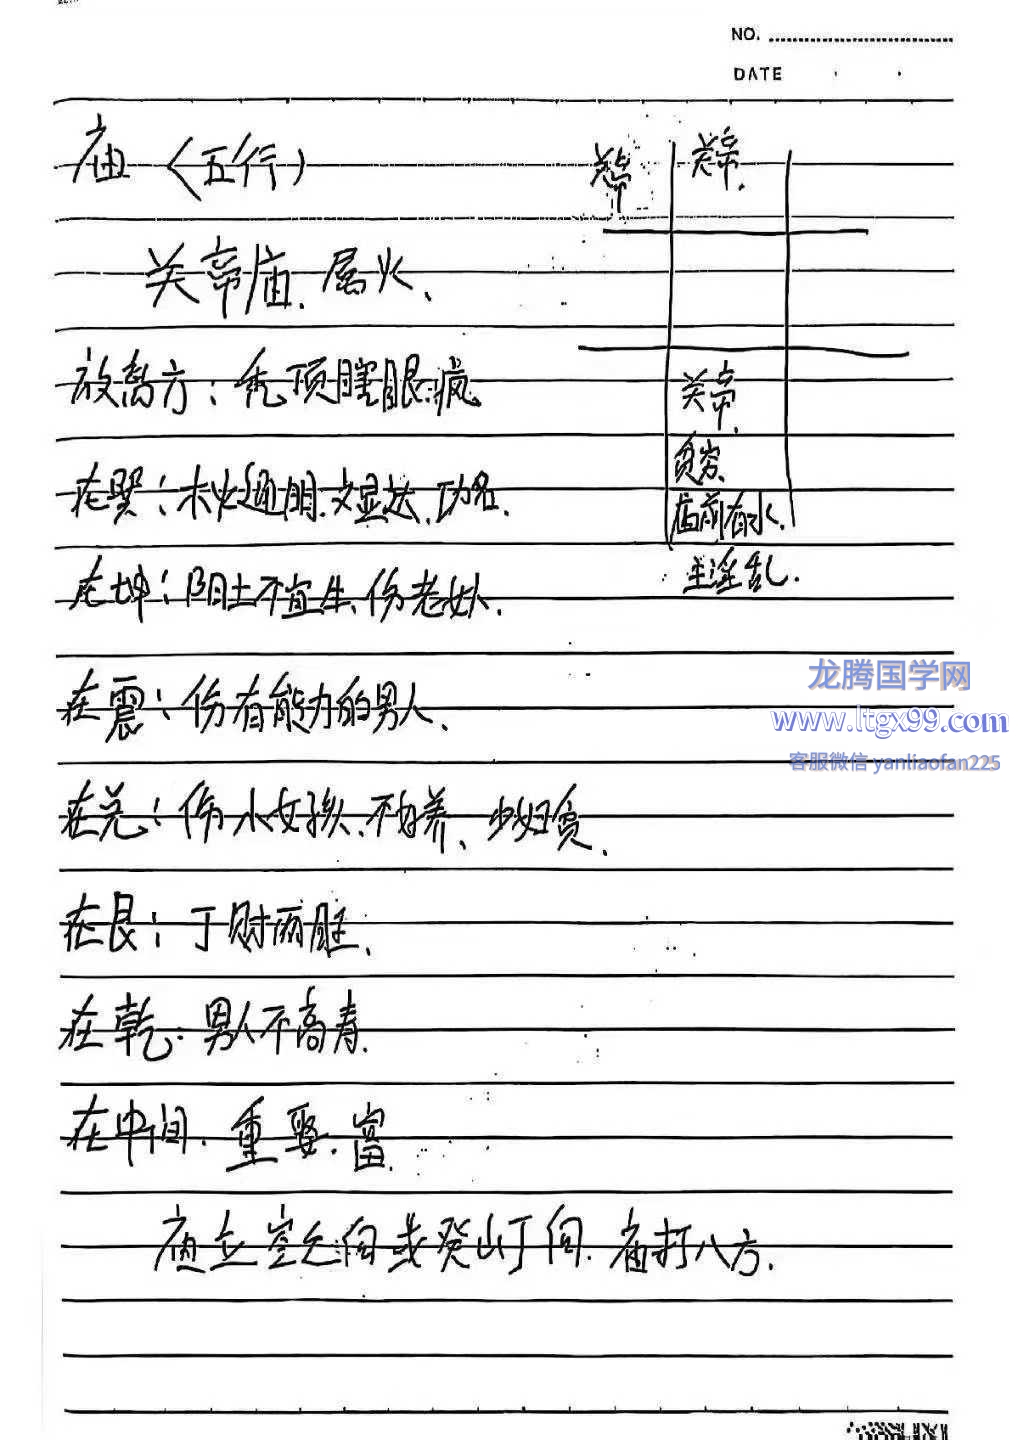 NO.
DATE
庙（五行）
关帝 关帝.
关帝庙.属火.
放离方：秃顶瞎眼.疯
关帝.
贫穷.
在巽：木火通明.文显达.功名.
庙前有水.
主淫乱.
在坤：阴土不宜生、伤老妇.
在震：伤有能力的男人.
在兑：伤小女孩、不好养、少妇贪.
在艮：丁财两旺.
在乾：男人不高寿.
在中间.重娶.富.
庙立空亡向或癸山丁向.庙打八方.
龙腾国学网
www.ltgx99.com
客服微信yanliaofan225